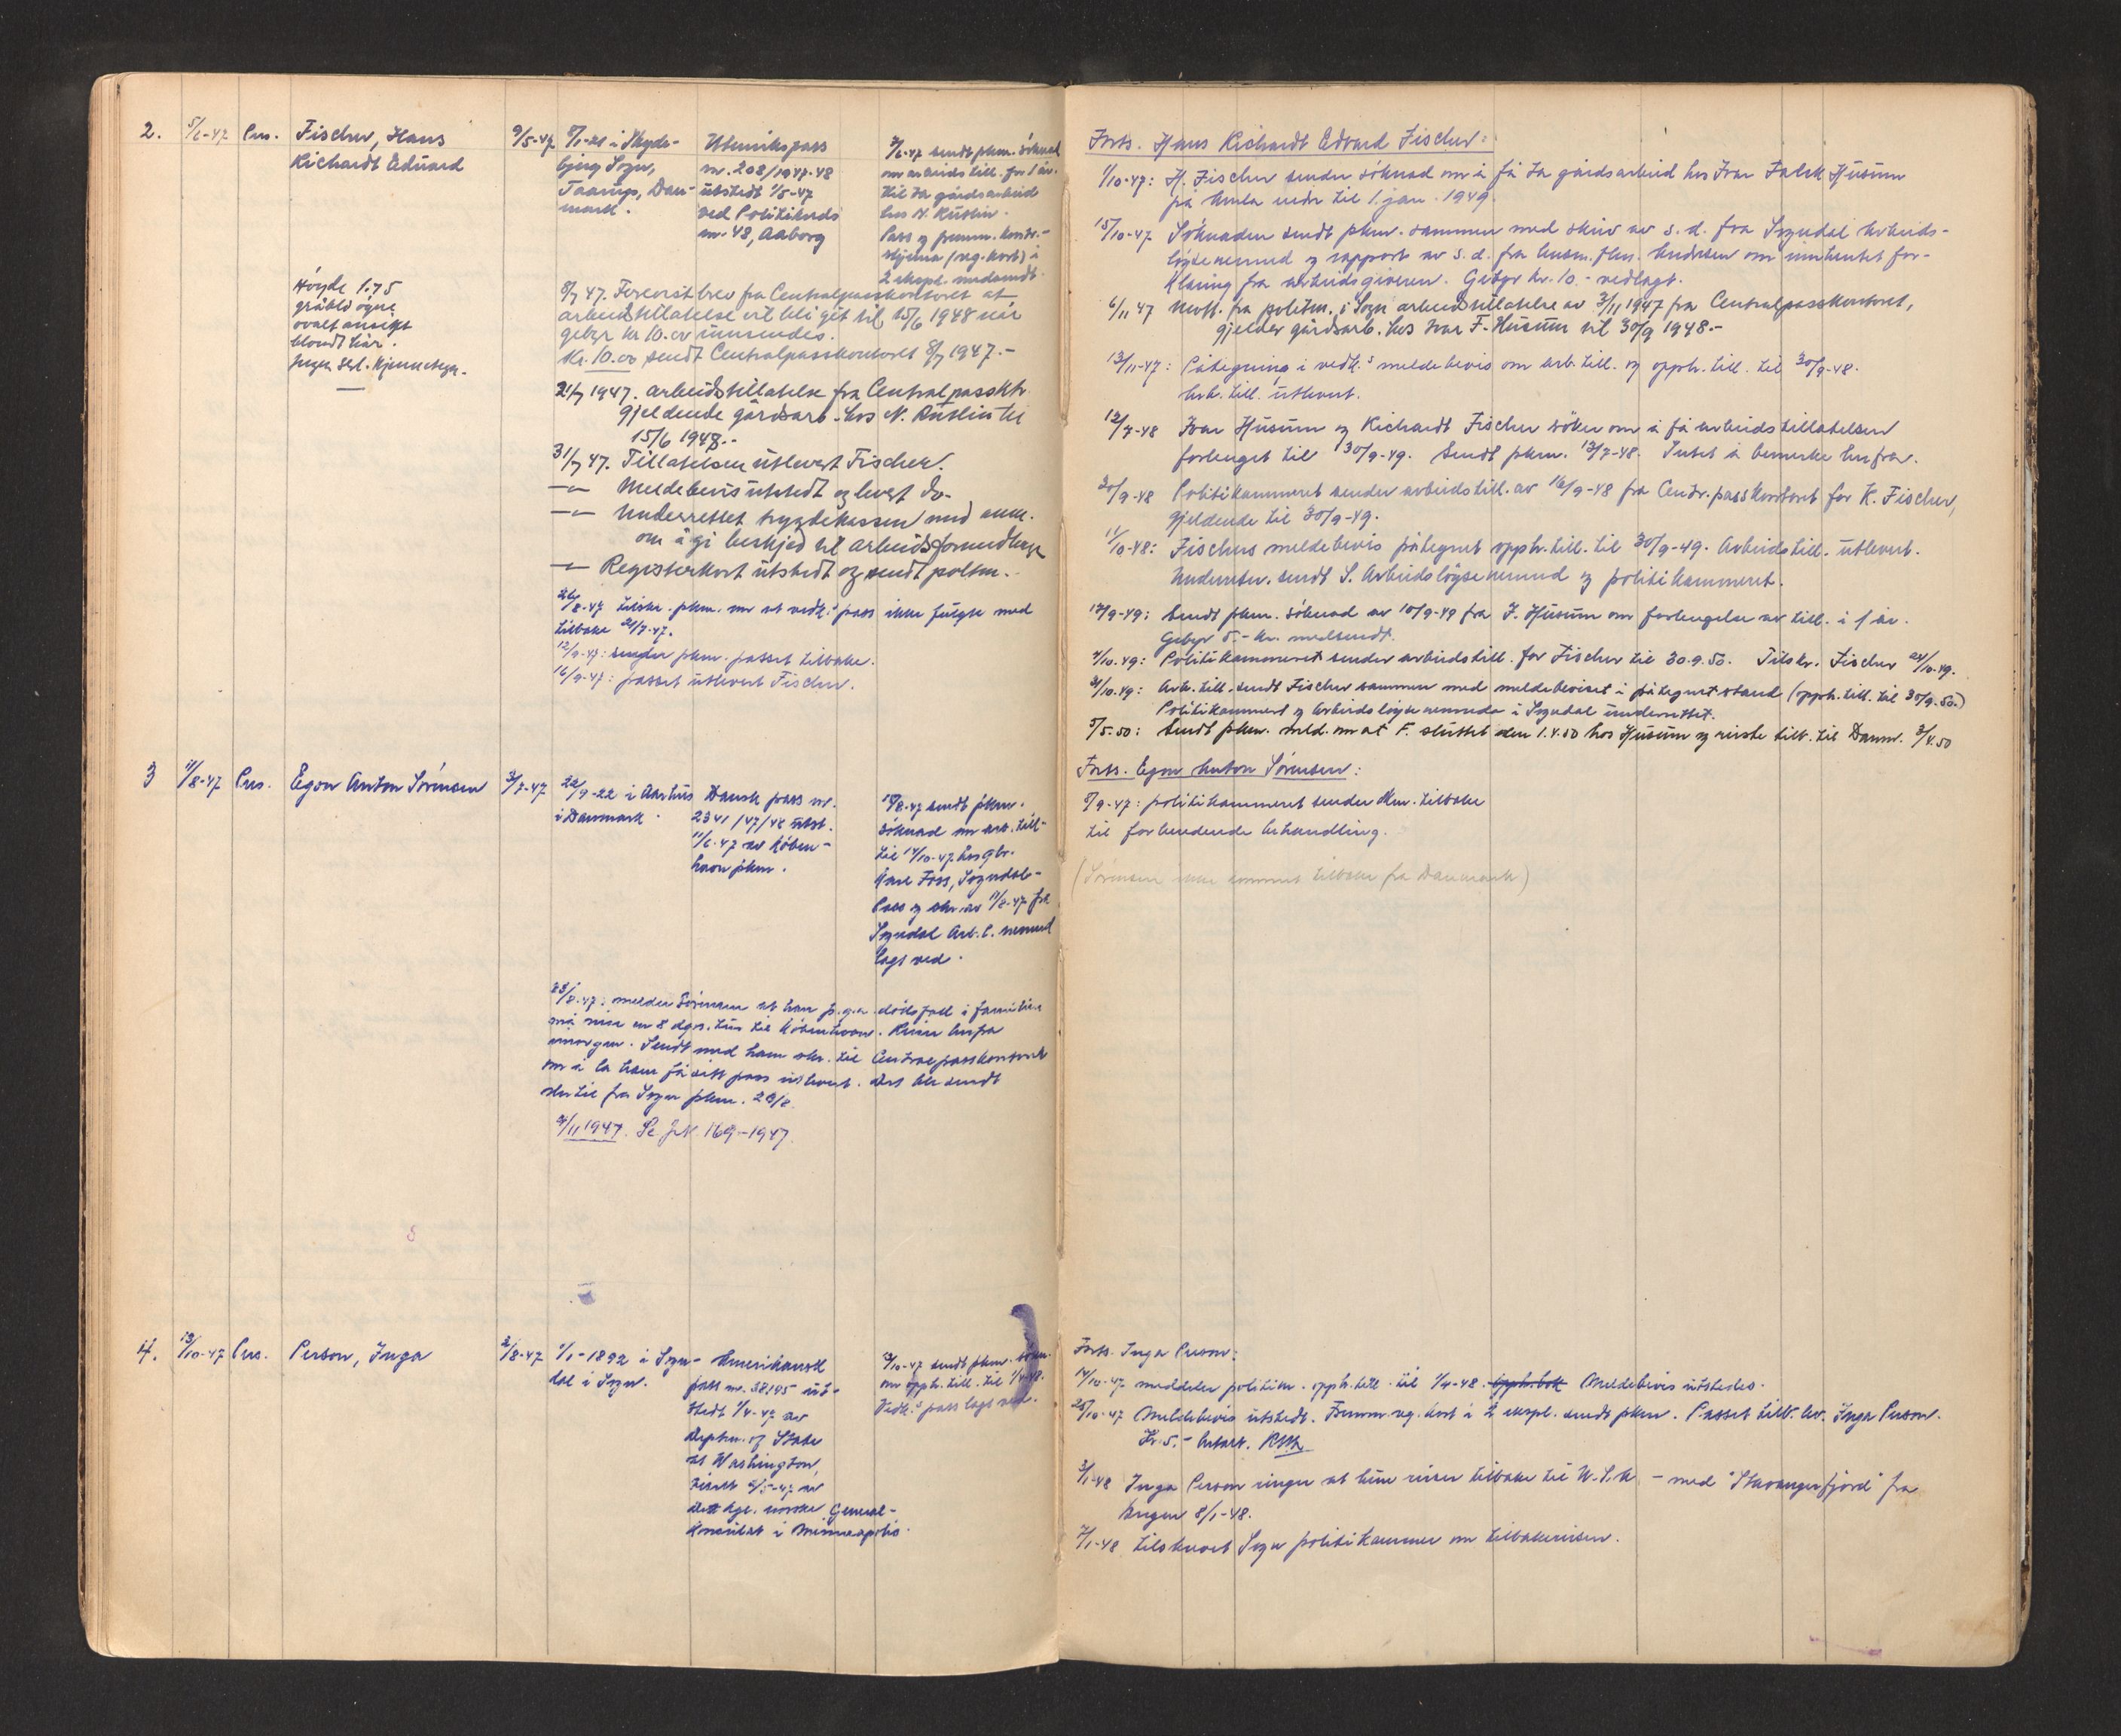 2. 5/6-47 Pers. Fischer, Hans
Richardt Eduard
9/5-47
8/1-21 i Skyde-
bjerg Sogn,
Taarup, Dan-
mark.
Utenrikspass
nr. 208/1947-48
utstedt 1/5-47
ved Politikreds
nr. 48, Aaborg
7/6-47 sendt pkm. söknad
om arbeidstill. for 1 år.
til ta gårdsarbeid
hos N. Rutlin.
Pass og fremm. kontr.-
skjema (reg. kort) i
2 ekspl. medsendt.
Höyde 1.75
gråblå öyne
ovalt ansikt
blondt hår.
Ingen serl. kjennetegn.
8/7 47. Forevist brev fra Centralpasskontoret at
arbeidstillatelse vil bli gitt til 15/6 1948 når
gebyr kr 10.00 innsendes.
Kr. 10.00 sendt Centralpasskontoret 8/7 1947.-
21/7 1947. Arbeidstillatelse fra Centralpassktr.
gjeldende gårdsarb. hos N. Rutlin til
15/6 1948.-
31/7 47. Tillatelsen utlevert Fischer.
—"— Meldebevis utstedt og levert do-
—"— Underrettet trygdekassen med anm.
om å gi beskjed til arbeidsformedlinga
—"— Registerkort utstedt og sendt poltm.-
26/8-47 tilskr. pkm. om at vedk.s pass ikke fulgte med
tilbake 21/7-47.
12/9-47: sender pkm. passet tilbake.
16/9-47: passet utlevert Fischer.
3 11/8-47 Pers. Egon Anton Sörensen
3/7-47
22/9-22 i Aarhus
i Danmark.
Dansk pass nr.
2341/47/48 utst.
11/6-47 av Köben-
havn pkm.
18/8-47 sendt pkm.
söknad om arb. till-
til 14/10-47 hos gbr.
Kare Foss, Sogndal-
Pass og skr. av 11/8-47 fra
Sogndal Arb. l. nemnd
lagt ved.
23/8-47: melder Sörensen at han p.g.a. dödsfall i familien
må reise en 8 dgrs. tur til Köbenhavn. Reiser herfra
imorgen. Sendt med ham skr. til Centralpasskontoret
om å la ham få sitt pass utlevert. Det ble sendt
dertil fra Sogn pkm. 20/8.
4/11 1947. Se J.nr 169-1947.
4. 13/10-47 Pers. Person, Inga
2/8-47
1/1-1892 i Sogn-
dal i Sogn.
Amerikansk
pass nr. 38195 ut-
stedt 1/4-47 av
Deptm. of State
at Washington,
visert 6/5-47 av
Det kgl. norske General-
konsulat i Minneapolis.
13/10-47 sendt pkm. sökn.
om opph. till. til 1/4-48.
Vedk.s pass lagt ved.
Forts. Hans Richardt Edvard Fischer:
1/10-47: H. Fischer sender söknad om å få ta gårdsarbeid hos Ivar Falck Husum
på Amla nedr til 1. jan. 1949.
15/10-47 Söknaden sendt pkm. sammen med skriv av s. d. fra Sogndal Arbeids-
löysenemnd og rapport av s. d. fra lensm. fm. Andresen om innhentet for-
klaring fra arbeidsgiveren. Gebyr kr. 10.- vedlagt.
6/11 47 Mott. fra politm. i Sogn arbeidstillatelse av 3/11 1947 fra Centralpasskontoret,
gjelder gårdsarb. hos Ivar F. Husum til 30/9 1948.-
13/11-47: Påtegning i vedk.s meldebevis om arb. till. og opph. till. til 30/9-48.
Arb. till. utlevert.
12/7-48 Ivar Husum og Richardt Fischer söker om å få arbeidstillatelsen
forlenget til 30/9-49. Sendt pkm. 13/7-48. Intet å bemerke herfra.
20/9-48 Politikammeret sender arbeidstill. av 16/9-48 fra Centr. passkontoret for R. Fischer,
gjeldende til 30/9-49.
11/10-48: Fischers meldebevis påtegnet opph. till. til 30/9-49. Arbeidstill. utlevert.
Underretn. sendt S. Arbeidslöysenemnd og politikammeret.
12/9-49: Sendt pkm. söknad av 10/9-49 fra I. Husum om forlengelse av till. i 1 år.
Gebyr 5.- kr. medsendt.
4/10.49: Politikammeret sender arbeidstill. for Fischer til 30.9.50. Tilskr. Fischer 24/10.49.
31/10.49: Arb. till. sendt Fischer sammen med meldebeviset i påtegnet stand (opph. till. til 30/9.50.)
Politikammeret og Arbeidslöysenemnda i Sogndal underrettet.
5/5.50: Sendt pkm. meld. om at F. sluttet den 1.4.50 hos Husum og reiste tilb. til Danm. 3/4.50
Forts. Egon Anton Sörensen:
5/9-47: politikammeret sender dkm. tilbake
til forberedende behandling.
(Sörensen ikke kommet tilbake fra Danmark)
Forts. Inga Person:
14/10-47 meddeler politim. opph. till. til 1/4-48. Opph. bok Meldebevis utstedes.
25/10-47 Meldebevis utstedt. Fremm. reg. kort i 2 ekspl. sendt pkm. Passet tilb. lev. Inga Person.
Kr. 5.- betalt.
3/1-48 Inga Person ringer at hun reiser tilbake til U.S.A. - med "Stavangerfjord" fra
Bergen 8/1-48.
7/1-48 tilskrevet Sogn politikammer om tilbakereisen.